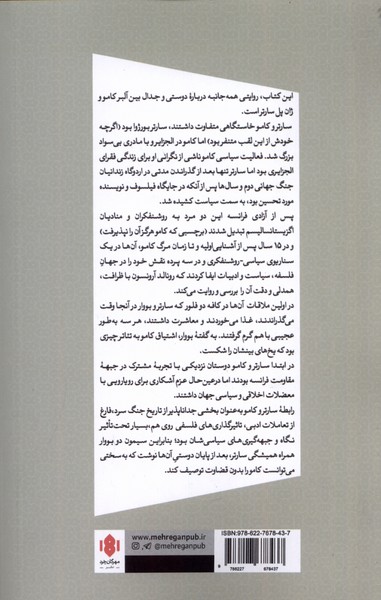 این کتاب، روایتی همه‌جانبه دربارهٔ دوستی و جدال بین آلبر کامو و
ژان پل سارتر است.
سارتر و کامو خاستگاهی متفاوت داشتند، سارتر بورژوا بود (اگرچه
خودش از این لقب متنفر بود) اما کامو در الجزایر و با مادری بی‌سواد
بزرگ شد. فعالیت سیاسی کامو ناشی از نگرانی او برای زندگی فقرای
الجزایری بود اما سارتر تنها بعد از گذراندن مدتی در اردوگاه زندانیان
جنگ جهانی دوم و سال‌ها پس از آنکه در جایگاه فیلسوف و نویسنده
مورد تحسین بود، به سمت سیاست کشیده شد.
پس از آزادی فرانسه این دو مرد به روشنفکران و منادیان
اگزیستانسیالیسم تبدیل شدند (برچسبی که کامو هرگز آن را نپذیرفت)
و در ۱۵ سال پس از آشنایی اولیه و تا زمان مرگ کامو، آن‌ها در یک
سناریوی سیاسی-روشنفکری و در سه پرده نقش خود را در جهان
فلسفه، سیاست و ادبیات ایفا کردند که رونالد آرونسون با ظرافت،
همدلی و دقت آن را بررسی و روایت می‌کند.
در اولین ملاقات آن‌ها در کافه دو فلور که سارتر و بووار در آنجا وقت
می‌گذراندند، غذا می‌خوردند و معاشرت داشتند، هر سه به‌طور
عجیبی با هم گرم گرفتند. به گفتهٔ بووار، اشتیاق کامو به تئاتر چیزی
بود که یخ‌های بینشان را شکست.
در ابتدا سارتر و کامو دوستان نزدیکی با تجربهٔ مشترک در جبههٔ
مقاومت فرانسه بودند اما درعین‌حال عزم آشکاری برای رویارویی با
معضلات اخلاقی و سیاسی جهان داشتند.
رابطهٔ سارتر و کامو به‌عنوان بخشی جداناپذیر از تاریخ جنگ سرد، فارغ
از تعاملات ادبی، تاثیرگذاری‌های فلسفی روی هم، بسیار تحت‌تأثیر
نگاه و جبهه‌گیری‌های سیاسی‌شان بود؛ بنابراین سیمون دو بووار
همراه همیشگی سارتر، بعد از پایان دوستیِ آن‌ها نوشت که به‌سختی
می‌توانست کامو را بدون قضاوت توصیف کند.
مهرگان خرد
www.mehreganpub.ir
@mehreganpub
ISBN:978-622-7678-43-7
9 786227 678437